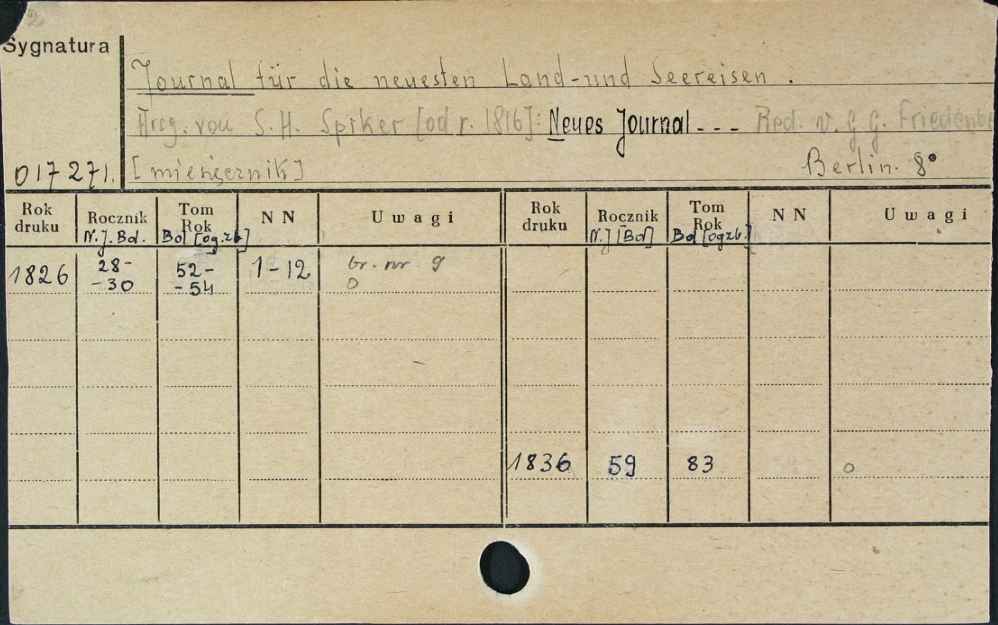 Sygnatura
Journal für die neuesten Land- und Seereisen.
Hrsg. von S. H. Spiker [od r. 1816]: Neues Journal --- Red. v. G. G. Friedenbe
017271. [miesięcznik] Berlin. 8°
Rok druku Rocznik Tom Rok NN Uwagi Rok druku Rocznik Tom Rok NN Uwagi
N.J. Bd. Bd [og.zb.] N.J [Bd] Bd [og.zb.]
1826 28- -30 52- -54 1-12 br. nr. 9
0
1836 59 83 0